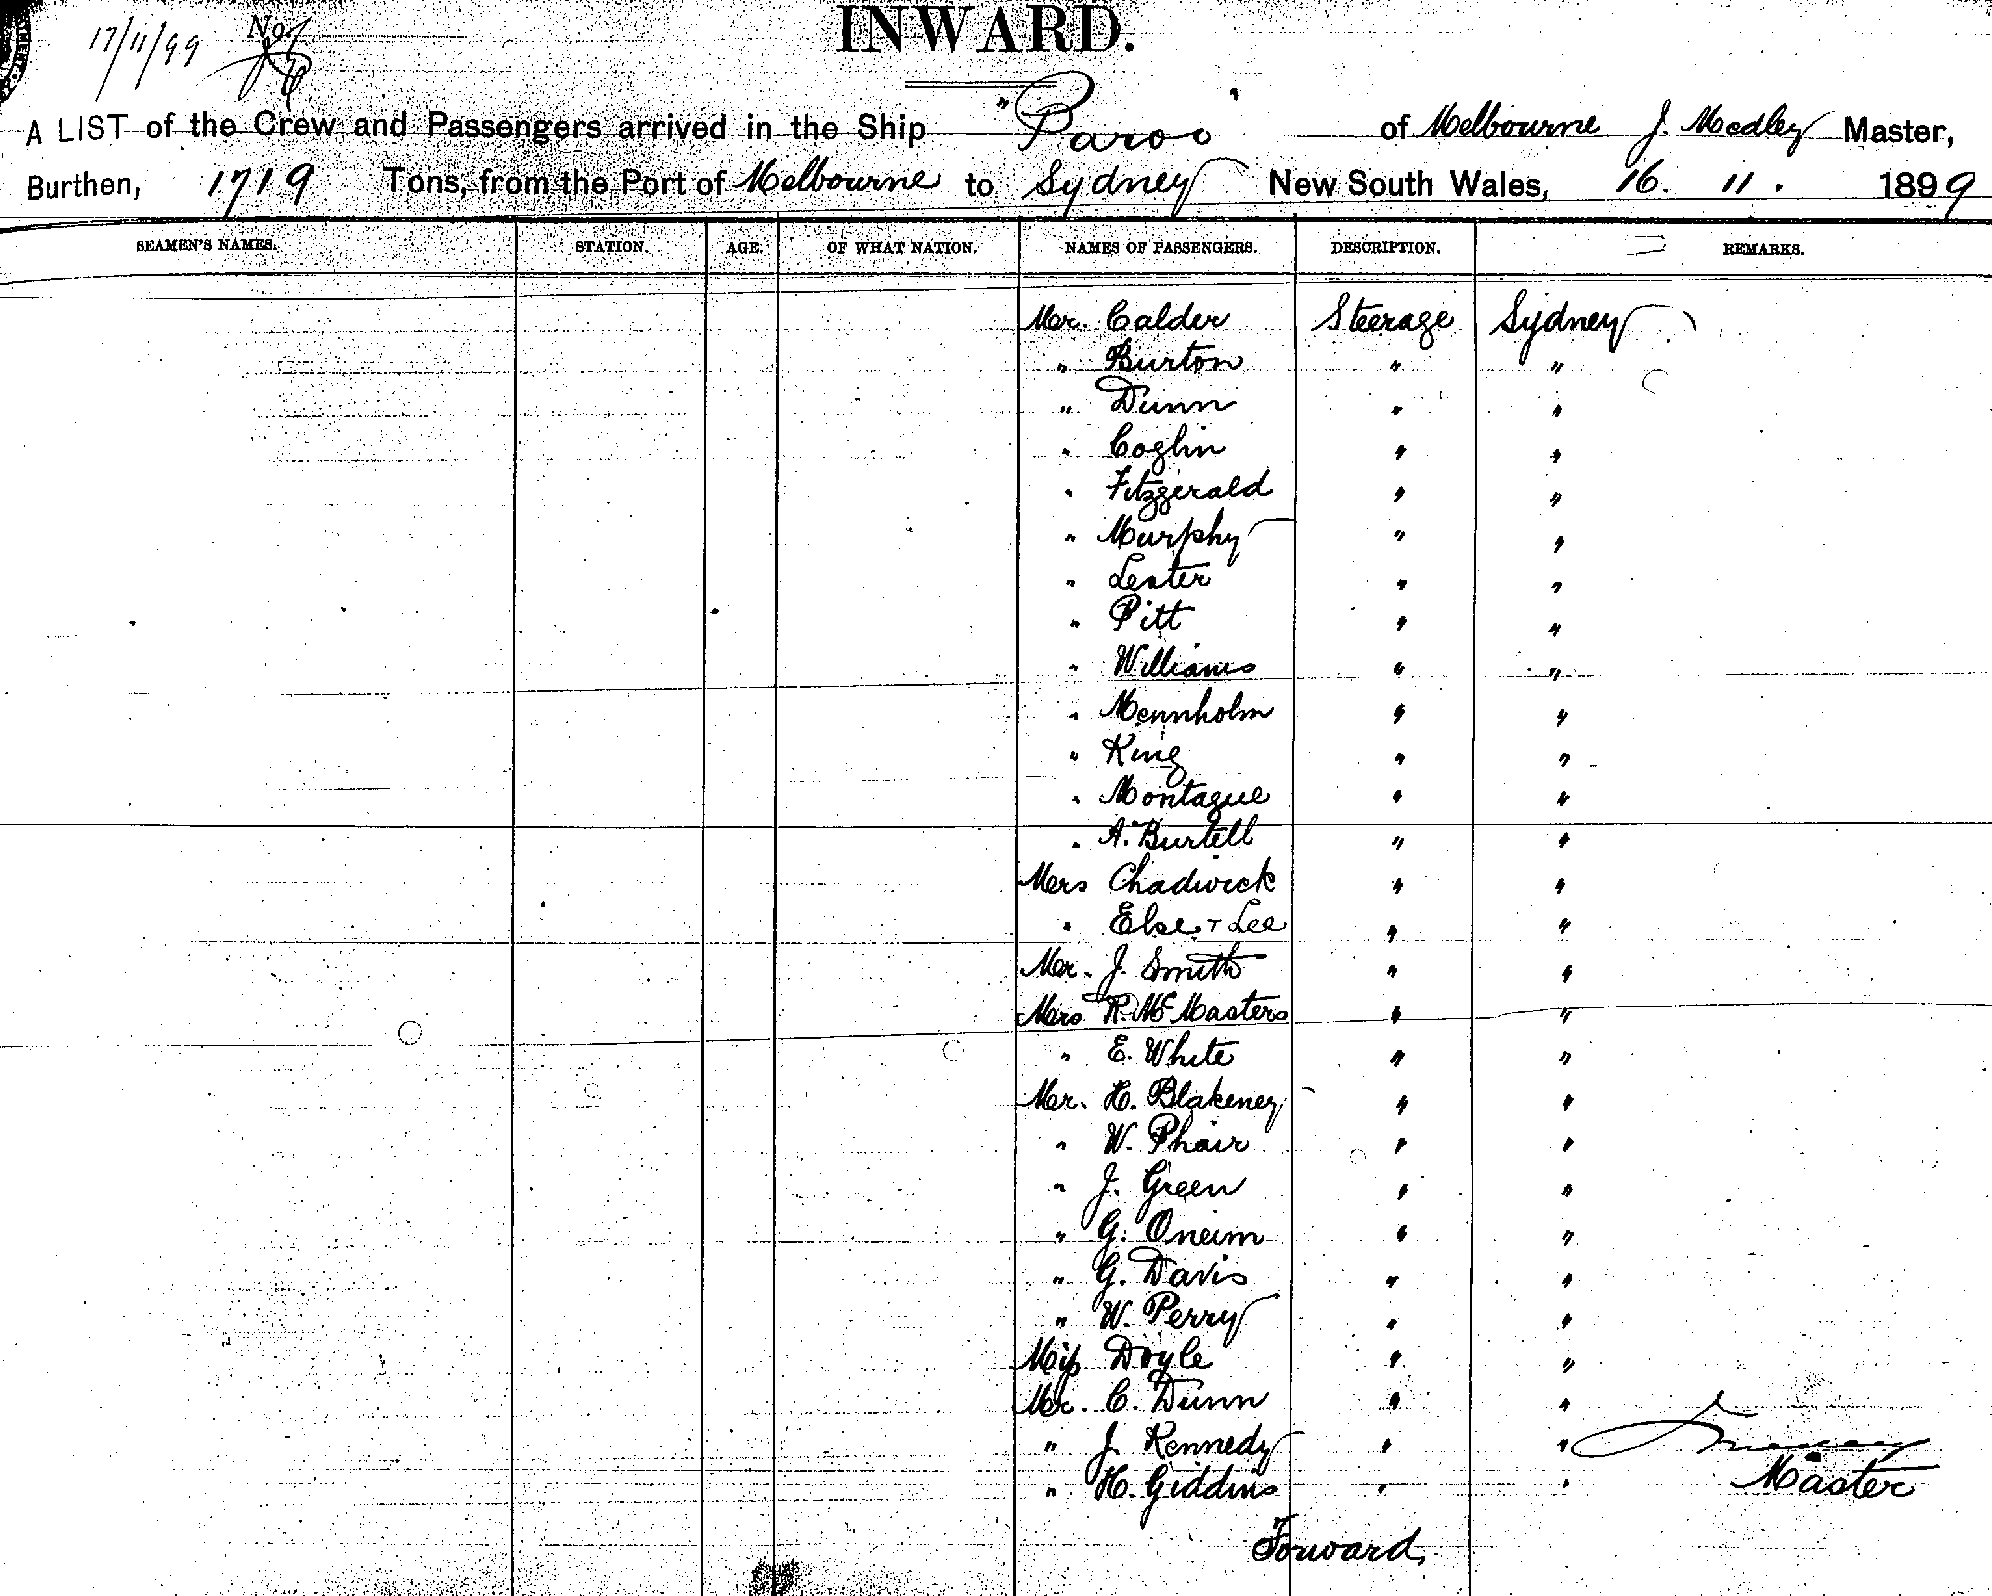 17/11/99 No
INWARD.
A LIST of the Crew and Passengers arrived in the Ship "Paroo" of Melbourne J. Medley Master,
Burthen, 1719 Tons, from the Port of Melbourne to Sydney New South Wales, 16. 11. 1899
SEAMEN'S NAMES. STATION. AGE. OF WHAT NATION. NAMES OF PASSENGERS. DESCRIPTION. REMARKS.
Mr. Calder Steerage Sydney
" Burton " "
" Dunn " "
" Coglin " "
" Fitzgerald " "
" Murphy " "
" Lester " "
" Pitt " "
" Williams " "
" Mennholm " "
" King " "
" Montague " "
" A. Burtell " "
Mrs Chadwick " "
" Else + Lee " "
Mr. J. Smith " "
Mrs R. McMasters " "
" E. White " "
Mr. H. Blakeney " "
" W. Phair " "
" J. Green " "
" G. Oneim " "
" G. Davis " "
" W. Perry " "
Miss Doyle " "
Mr. C. Dunn " "
" J. Kennedy " "
" H. Giddins " "
Master
Forward